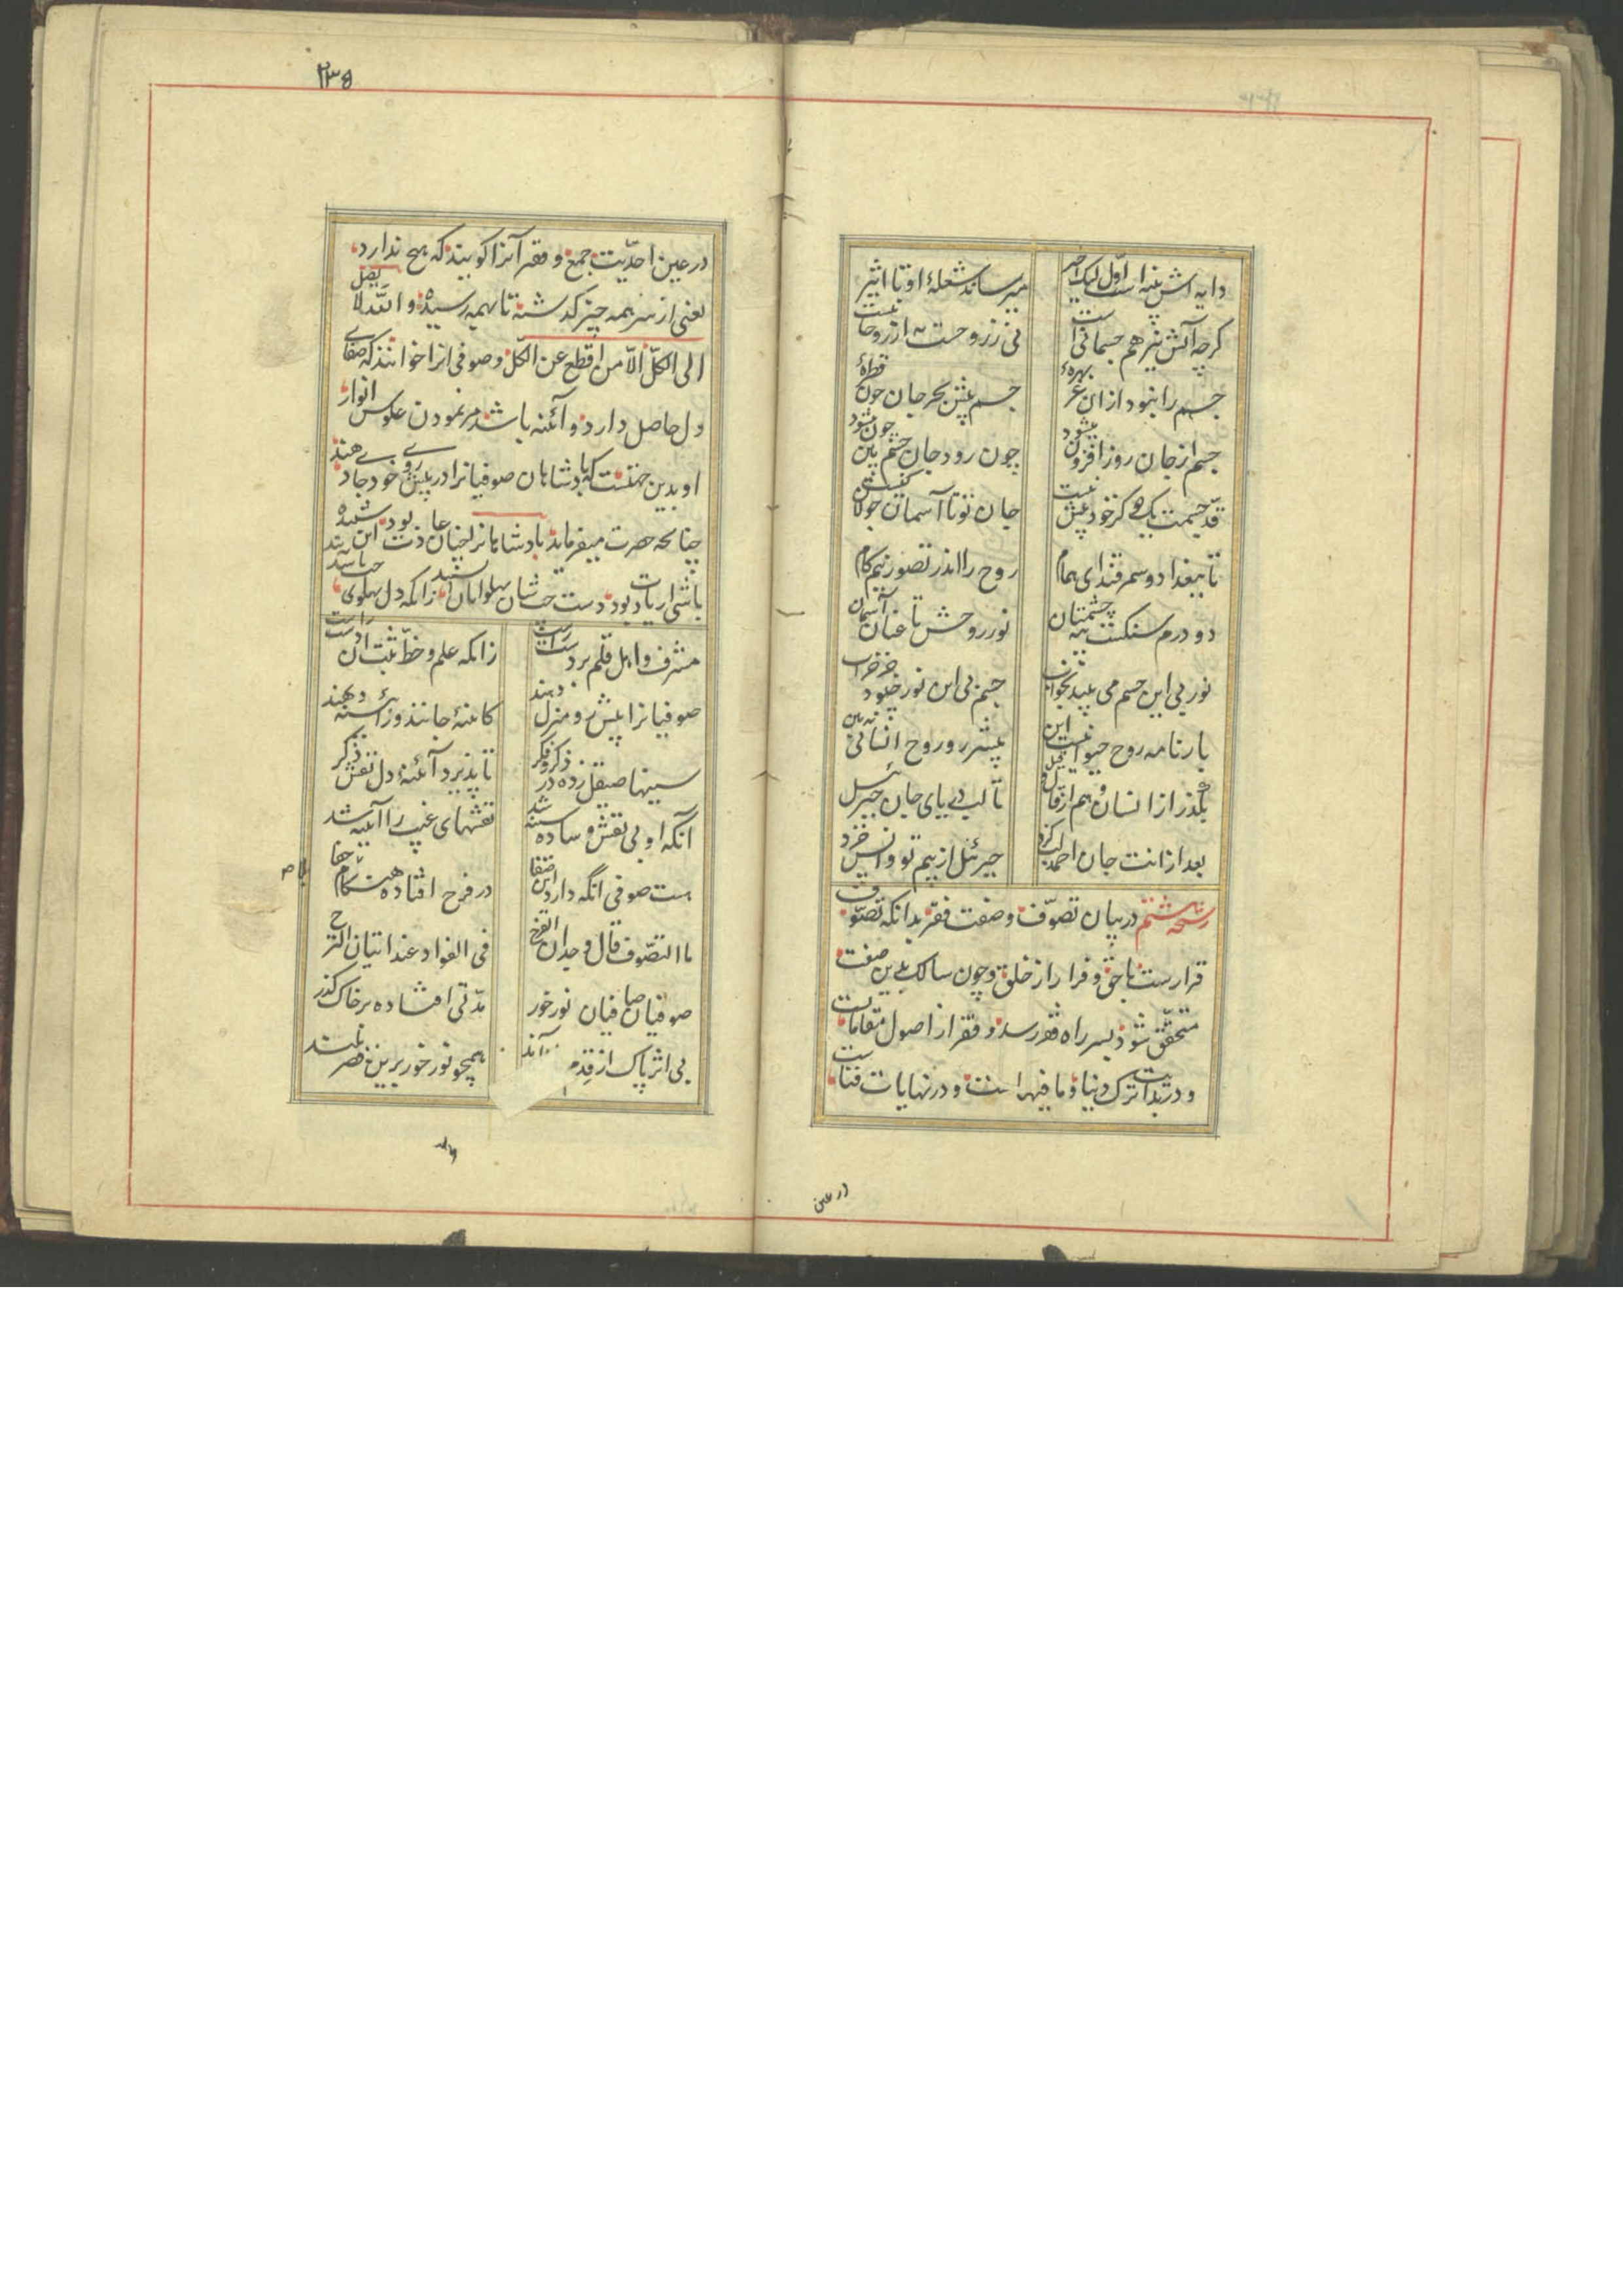 دایه اش پنبه است اول لیک اخیر
میرساند شعلهٔ او تا اثیر
کرچه آتش نیز هم جسمانی است
نی ز روحست نه از روحانیست
جسم را نبود از ان عز بهرهٔ
جسم پیش بحر جان چون قطرهٔ
جسم از جان روز افزون میشود
چون رود جان جسم بین چون میشود
حد جسمت یک دو کز خود بیش نیست
جان تو تا آسمان جولان کنیست
تا ببغداد و سمرقند ای همام
روح را اندر تصور نیم کام
دو درم سنکست پیه چشمتان
نور روحش تا عنان آسمان
نور بی این چشم می بیند بخواب
چشم بی این نور چبود جز خراب
بارنامه روح حیوانیست این
پیشتر رو روح انسانی ببین
بگذر از انسان و هم از قال و قیل
تا لب دریای جان جبرئیل
بعد از انت جان احمد لب کزد
جبرئیل از بیم تو واپس خزد
رشحه هشتم در بیان تصوّف و صفت فقر بدانکه تصوّف
قرارست باحق و فرار از خلق و چون سالک بدین صفت
متحقّق شود بسر راه فقر رسد و فقر از اصول مقاماتست
و در بدایت ترک دنیا و ما فیهاست و در نهایات فناست
در عین
۲۳۵
در عین احدّیت جمع و فقیر آنرا کویند که هیچ ندارد
یعنی از سر همه چیز کذشته تا بهمه رسیده و الله لا یصل
الی الکلّ الاّ من اقطع عن الکلّ و صوفی انرا خوانند که صفای
دل حاصل دارد و آئنه باشد مر نمودن عکوس انوار
او بدین جهتست که پادشاهان صوفیانرا در پیش روی خود جا دهند
چنانچه حضرت میفرماید پادشاهانرا چنان عادت بود این شنیده
باشی ار یادت بود دست چپشان پهلوانان ایستند زانکه دل پهلوی چپ باشد
مشرف و اهل قلم بر دست راست
زانکه علم و خطّ ثبت آن دست راست
صوفیانرا پیش رو منزل دهند
کاینهٔ جانند وز آئینه بهند
سینها صیقل زده در ذکر و فکر
تا پذیرد آئنهٔ دل نقش بکر
آنکه او بی نقش و ساده سینه شد
نقشهای غیب را آئینه شد
هست صوفی انکه دارد این صفا
در فرح افتاده هنکام جفا
ما التصّوف قال وجدان الفرح
فی الفواد عند اتیان الترح
صوفیان صافیان نور خور
مدّتی افتاده بر خاک کذر
بی اثر پاک از قذر
همچو نور خور برین